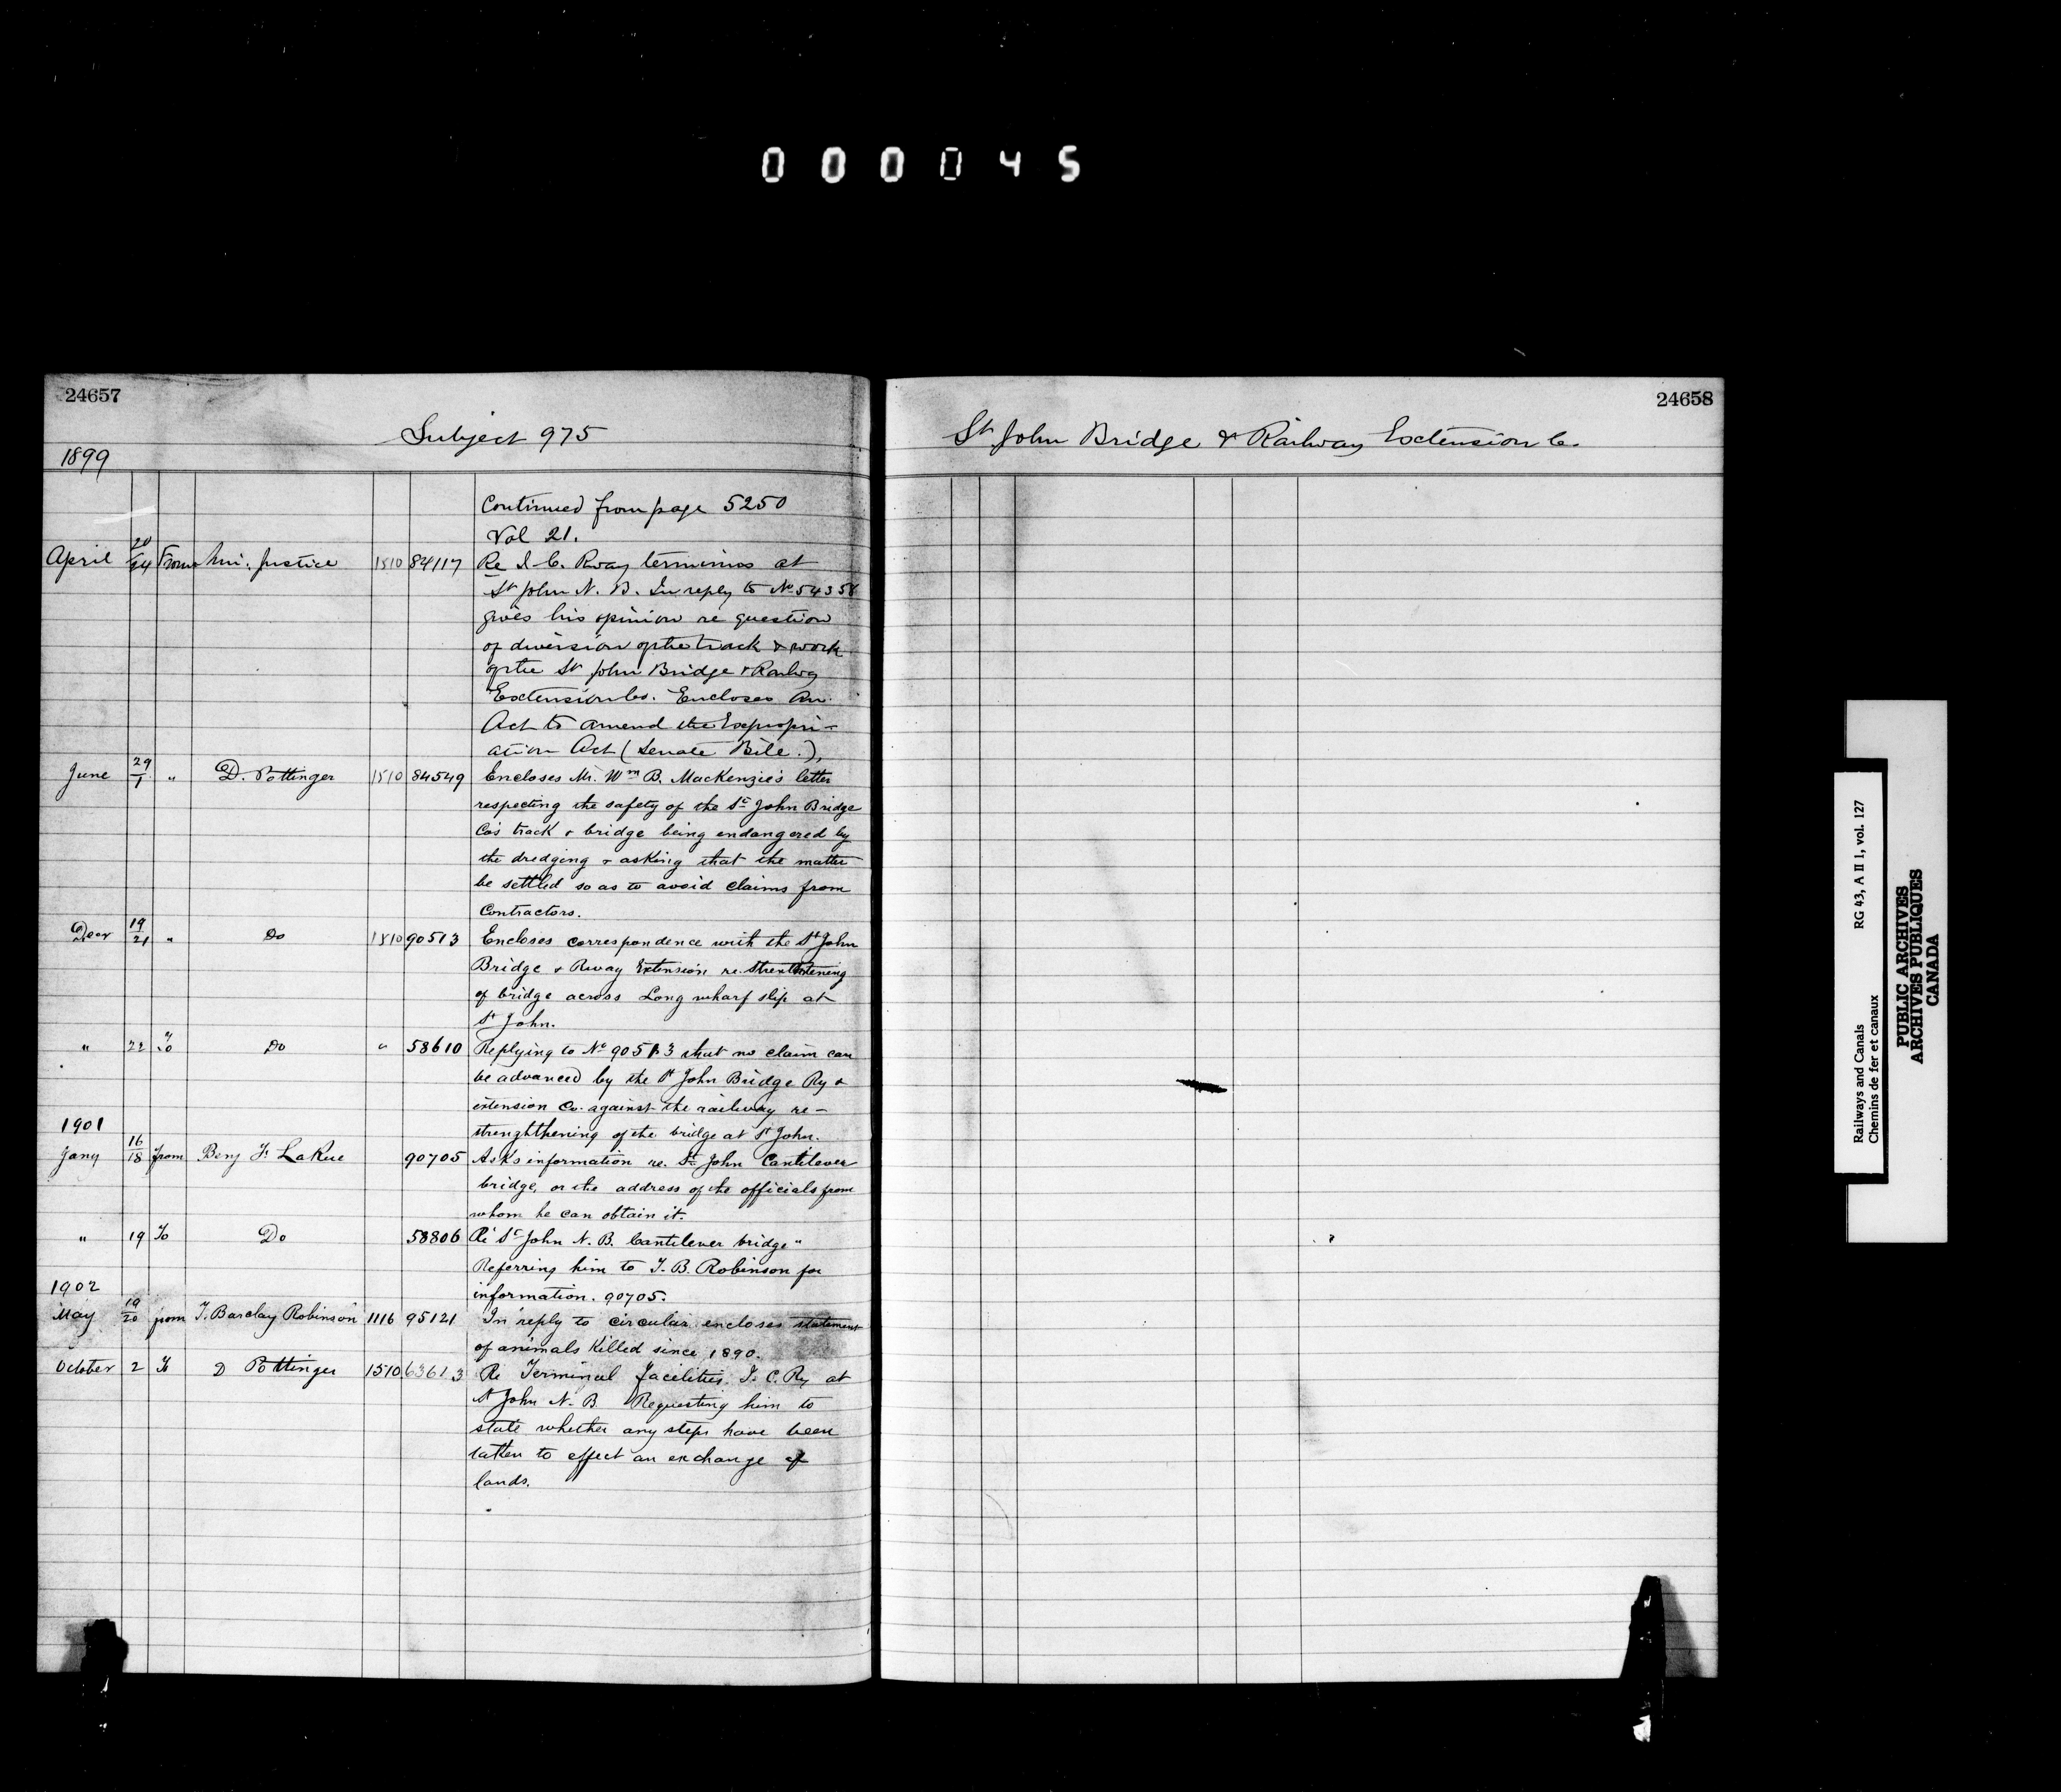 000045
24657
Subject 975
1899
Continued from page 5250
Vol 21.
April 20/24 From Min. Justice 1510 84117 Re I. C. Rway terminus at
St John N. B. In reply to No 54358
gives his opinion re question
of diversion of the track & work
of the St John Bridge & Railwy
Extension Co. Encloses An
Act to amend the Expropri-
ation Act (Senate Bill.),
June 29/1 " D. Pottinger 1510 84549 Encloses Mr. Wm B. MacKenzie's letter
respecting the safety of the St John Bridge
Co's track & bridge being endangered by
the dredging & asking that the matter
be settled so as to avoid claims from
Contractors.
Decr 19/21 " Do 1510 90513 Encloses correspondence with the St John
Bridge & Rway Extension re. strenthtening
of bridge across Long wharf slip at
St John.
" 22 To Do " 58610 Replying to No 90513 that no claim can
be advanced by the St John Bridge Ry &
extension Co. against the railway re-
strenghthening of the bridge at St John.
1901
Jany 16/18 from Benj F. LaRue 90705 Asks information re. St John Cantilever
bridge, or the address of the officials from
whom he can obtain it.
" 19 To Do 58806 Re "St John N. B. Cantilever bridge"
Referring him to T. B. Robinson for
information. 90705.
1902
May 19/20 from T. Barclay Robinson 1116 95121 In reply to circular encloses statement
of animals killed since 1890.
October 2 To D Pottinger 1510 63613 Re Terminal facilities I. C. Ry at
St John N. B. Requesting him to
state whether any steps have been
tatken to effect an exchange of
lands.
24658
St John Bridge & Railway Extension Co.
Railways and Canals RG 43, A II 1, vol. 127
Chemins de fer et canaux
PUBLIC ARCHIVES
ARCHIVES PUBLIQUES
CANADA